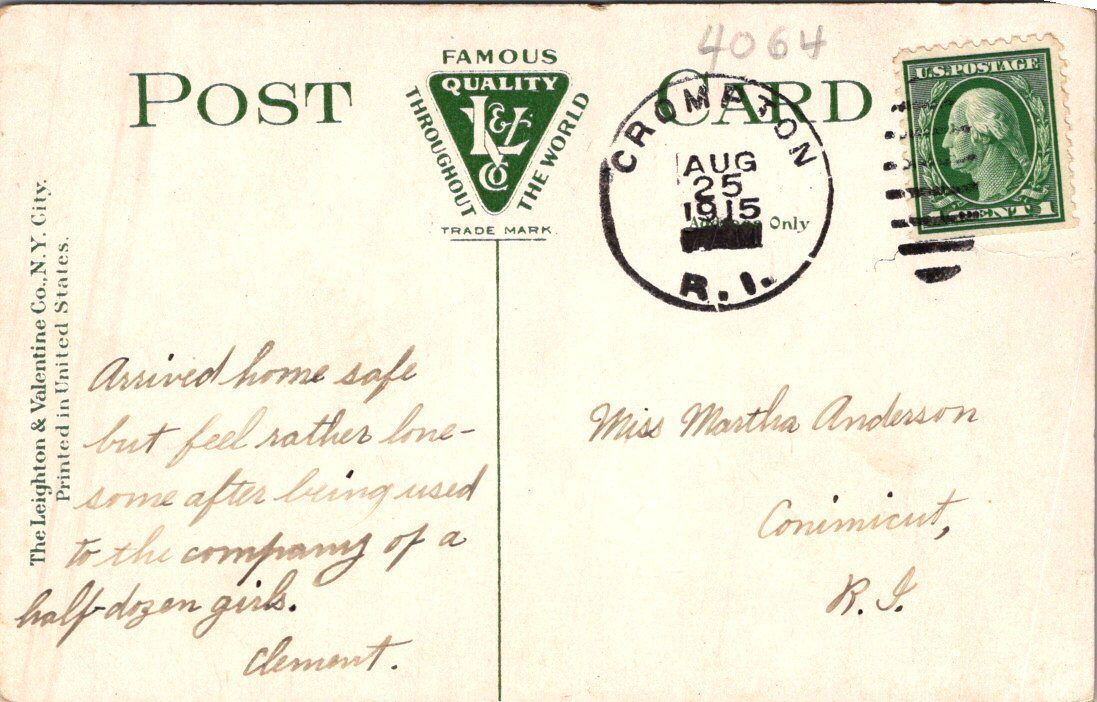 4064
POST CARD
FAMOUS
QUALITY
L & V
CO
THROUGHOUT THE WORLD
TRADE MARK
CROMPTON
AUG
25
1915
AM
R.I.
Only
U.S. POSTAGE
CENT 1
The Leighton & Valentine Co., N.Y. City.
Printed in United States.
Arrived home safe
but feel rather lone-
some after being used
to the company of a
half-dozen girls.
Clement.
Miss Martha Anderson
Conimicut,
R. I.